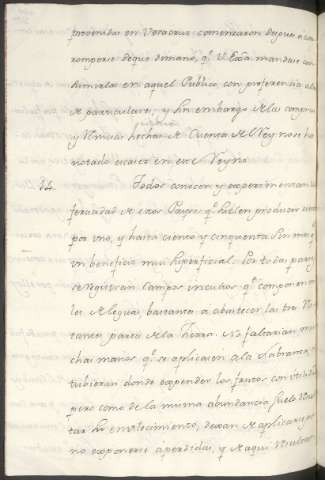 provenidas en Veracruz comenzaron despues a co
romperse de que dimanó, qe. V. Exa. mandase con
sumirlas en aquel Publico, con preferencia a la
de particulares; y sin embargo de las compras
y Remesas hechas de Cuenta del Rey no se ha
notado escasez en este Reyno.
Todos conocen, y experimentan la
feracidad de estos Payses qe. suelen producir ciento
por uno, y hasta ciento y cinquenta sin mas qe.
un beneficio mui superficial. Por todas partes
se registran campos incultos qe. componen mi
les de leguas, bastantes a abastecer las tres
tantas partes de la tierra. No faltarian mu
chas manos qe. se aplicasen a la labranza, si
tubieran donde expender los frutos con utilidad
pero como de la misma abundancia suele resul
tar su envilecimiento, dexan de aplicarse por
no exponerse a perdidas, y de aqui resultan